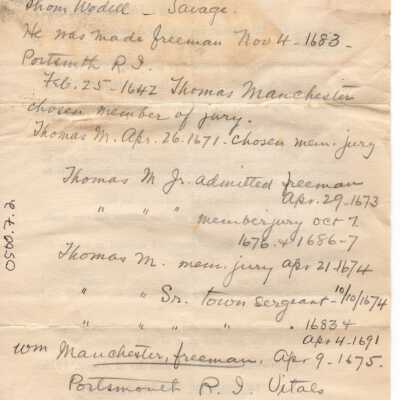 Thom Wodell - Savage.
He was made freeman Nov 4 - 1683 -
Portsmth R.I.
Feb. 25 - 1642 Thomas Manchester
chosen member of jury.
Thomas M. Apr. 26. 1671. chosen mem. jury
Thomas M Jr. admitted freeman
Apr. 29 - 1673
" " " member jury Oct 7
1676. & 1686-7
Thomas M. mem. jury Apr 21 - 1674
" " Sr. town sergeant - 10/10/1674
" " " . 1683 &
Apr 4 - 1691
Wm Manchester, freeman, Apr 9 - 1675.
Portsmouth R. I. Vitals
0500.7.2